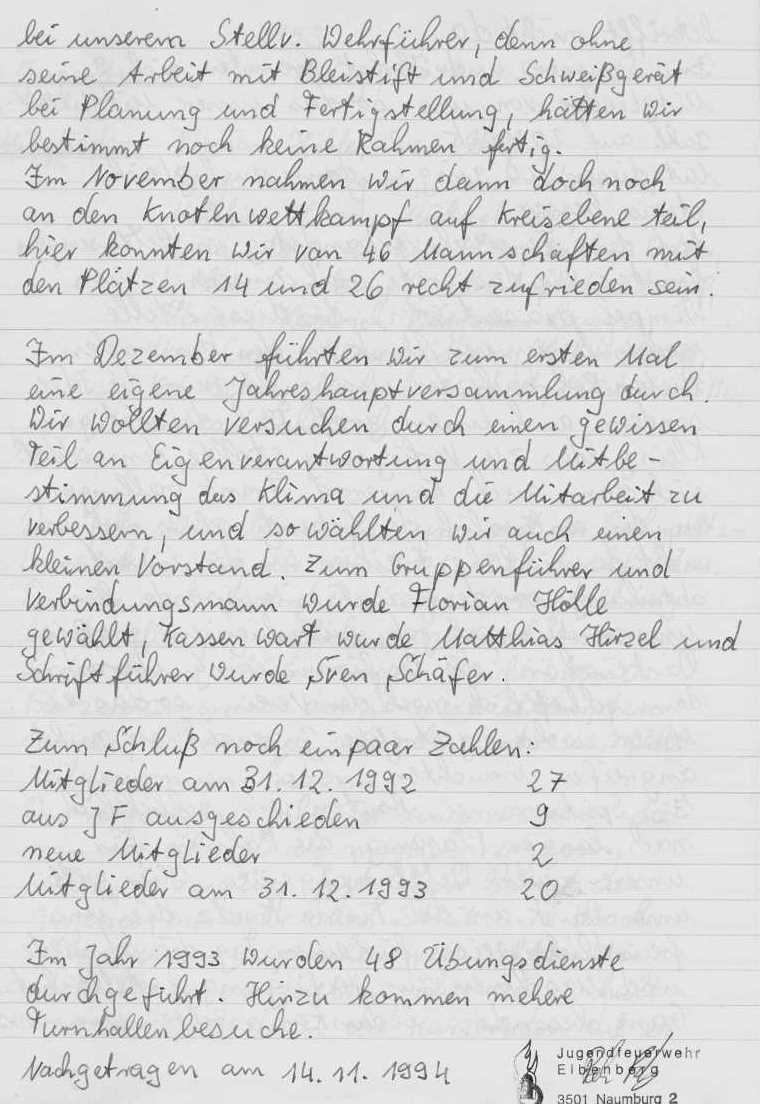 bei unserem Stellv. Wehrführer, denn ohne
seine Arbeit mit Bleistift und Schweißgerät
bei Planung und Fertigstellung, hätten wir
bestimmt noch keine Rahmen fertig.
Im November nahmen wir dann doch noch
an den Knotenwettkampf auf Kreisebene teil,
hier konnten wir von 46 Mannschaften mit
den Plätzen 14 und 26 recht zufrieden sein.
Im Dezember führten wir zum ersten Mal
eine eigene Jahreshauptversammlung durch.
Wir wollten versuchen durch einen gewissen
Teil an Eigenverantwortung und Mitbe-
stimmung das Klima und die Mitarbeit zu
verbessern, und so wählten wir auch einen
kleinen Vorstand. Zum Gruppenführer und
Verbindungsmann wurde Florian Hölle
gewählt, Kassenwart wurde Matthias Hirzel und
Schriftführer wurde Sven Schäfer.
Zum Schluß noch ein paar Zahlen:
Mitglieder am 31.12.1992 27
aus JF ausgeschieden 9
neue Mitglieder 2
Mitglieder am 31.12.1993 20
Im Jahr 1993 wurden 48 Übungsdienste
durchgeführt. Hinzu kommen mehere
Turnhallenbesuche.
Nachgetragen am 14.11.1994
Jugendfeuerwehr
Elbenberg
3501 Naumburg 2